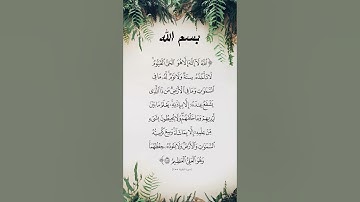 بسم الله
﴿ ٱللَّهُ لَآ إِلَٰهَ إِلَّا هُوَ ٱلْحَىُّ ٱلْقَيُّومُ
لَا تَأْخُذُهُۥ سِنَةٌ وَلَا نَوْمٌ لَّهُۥ مَا فِى
ٱلسَّمَٰوَٰتِ وَمَا فِى ٱلْأَرْضِ مَن ذَا ٱلَّذِى
يَشْفَعُ عِندَهُۥٓ إِلَّا بِإِذْنِهِۦ يَعْلَمُ مَا بَيْنَ
أَيْدِيهِمْ وَمَا خَلْفَهُمْ وَلَا يُحِيطُونَ بِشَىْءٍ
مِّنْ عِلْمِهِۦٓ إِلَّا بِمَا شَآءَ وَسِعَ كُرْسِيُّهُ
ٱلسَّمَٰوَٰتِ وَٱلْأَرْضَ وَلَا يَـُٔودُهُۥ حِفْظُهُمَا
وَهُوَ ٱلْعَلِىُّ ٱلْعَظِيمُ ﴾